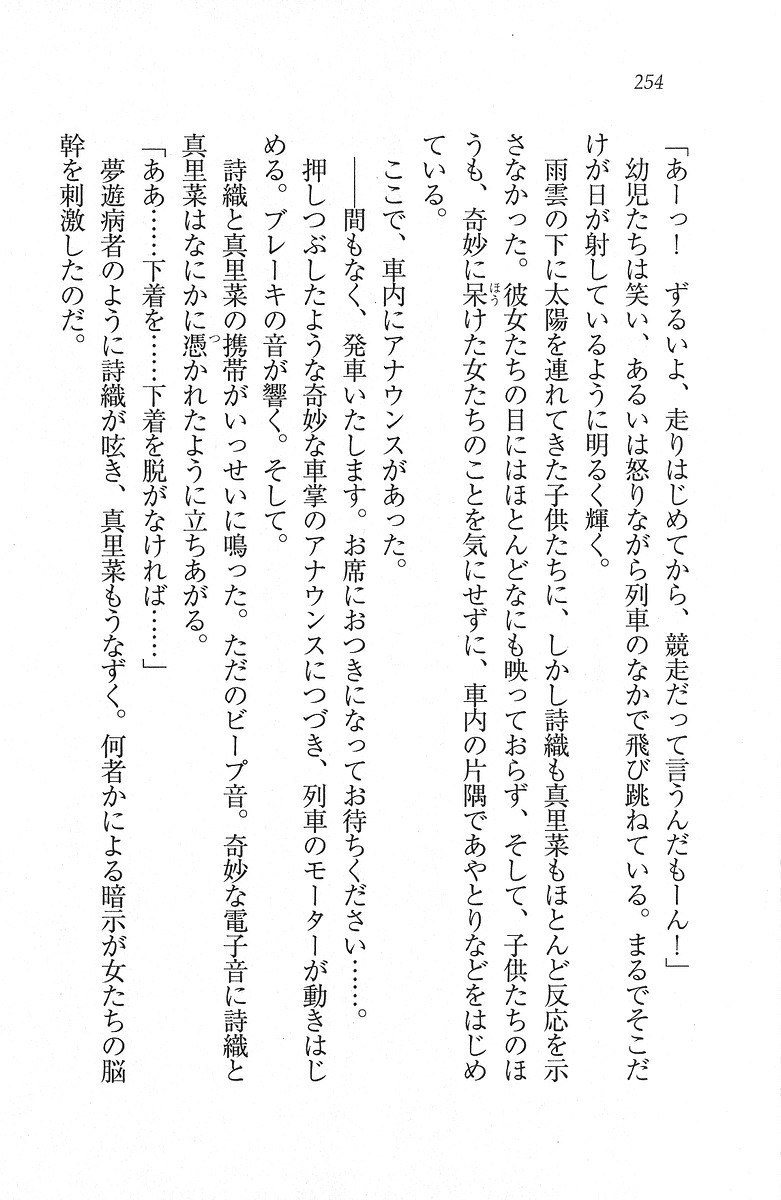 254
「あーっ！　ずるいよ、走りはじめてから、競走だって言うんだもーん！」
　幼児たちは笑い、あるいは怒りながら列車のなかで飛び跳ねている。まるでそこだ
けが日が射しているように明るく輝く。
　雨雲の下に太陽を連れてきた子供たちに、しかし詩織も真里菜もほとんど反応を示
さなかった。彼女たちの目にはほとんどなにも映っておらず、そして、子供たちのほ
うも、奇妙に呆けた女たちのことを気にせずに、車内の片隅であやとりなどをはじめ
ている。
　ここで、車内にアナウンスがあった。
　――間もなく、発車いたします。お席におつきになってお待ちください……。
　押しつぶしたような奇妙な車掌のアナウンスにつづき、列車のモーターが動きはじ
める。ブレーキの音が響く。そして。
　詩織と真里菜の携帯がいっせいに鳴った。ただのビープ音。奇妙な電子音に詩織と
真里菜はなにかに憑かれたように立ちあがる。
「ああ……下着を……下着を脱がなければ……」
　夢遊病者のように詩織が呟き、真里菜もうなずく。何者かによる暗示が女たちの脳
幹を刺激したのだ。